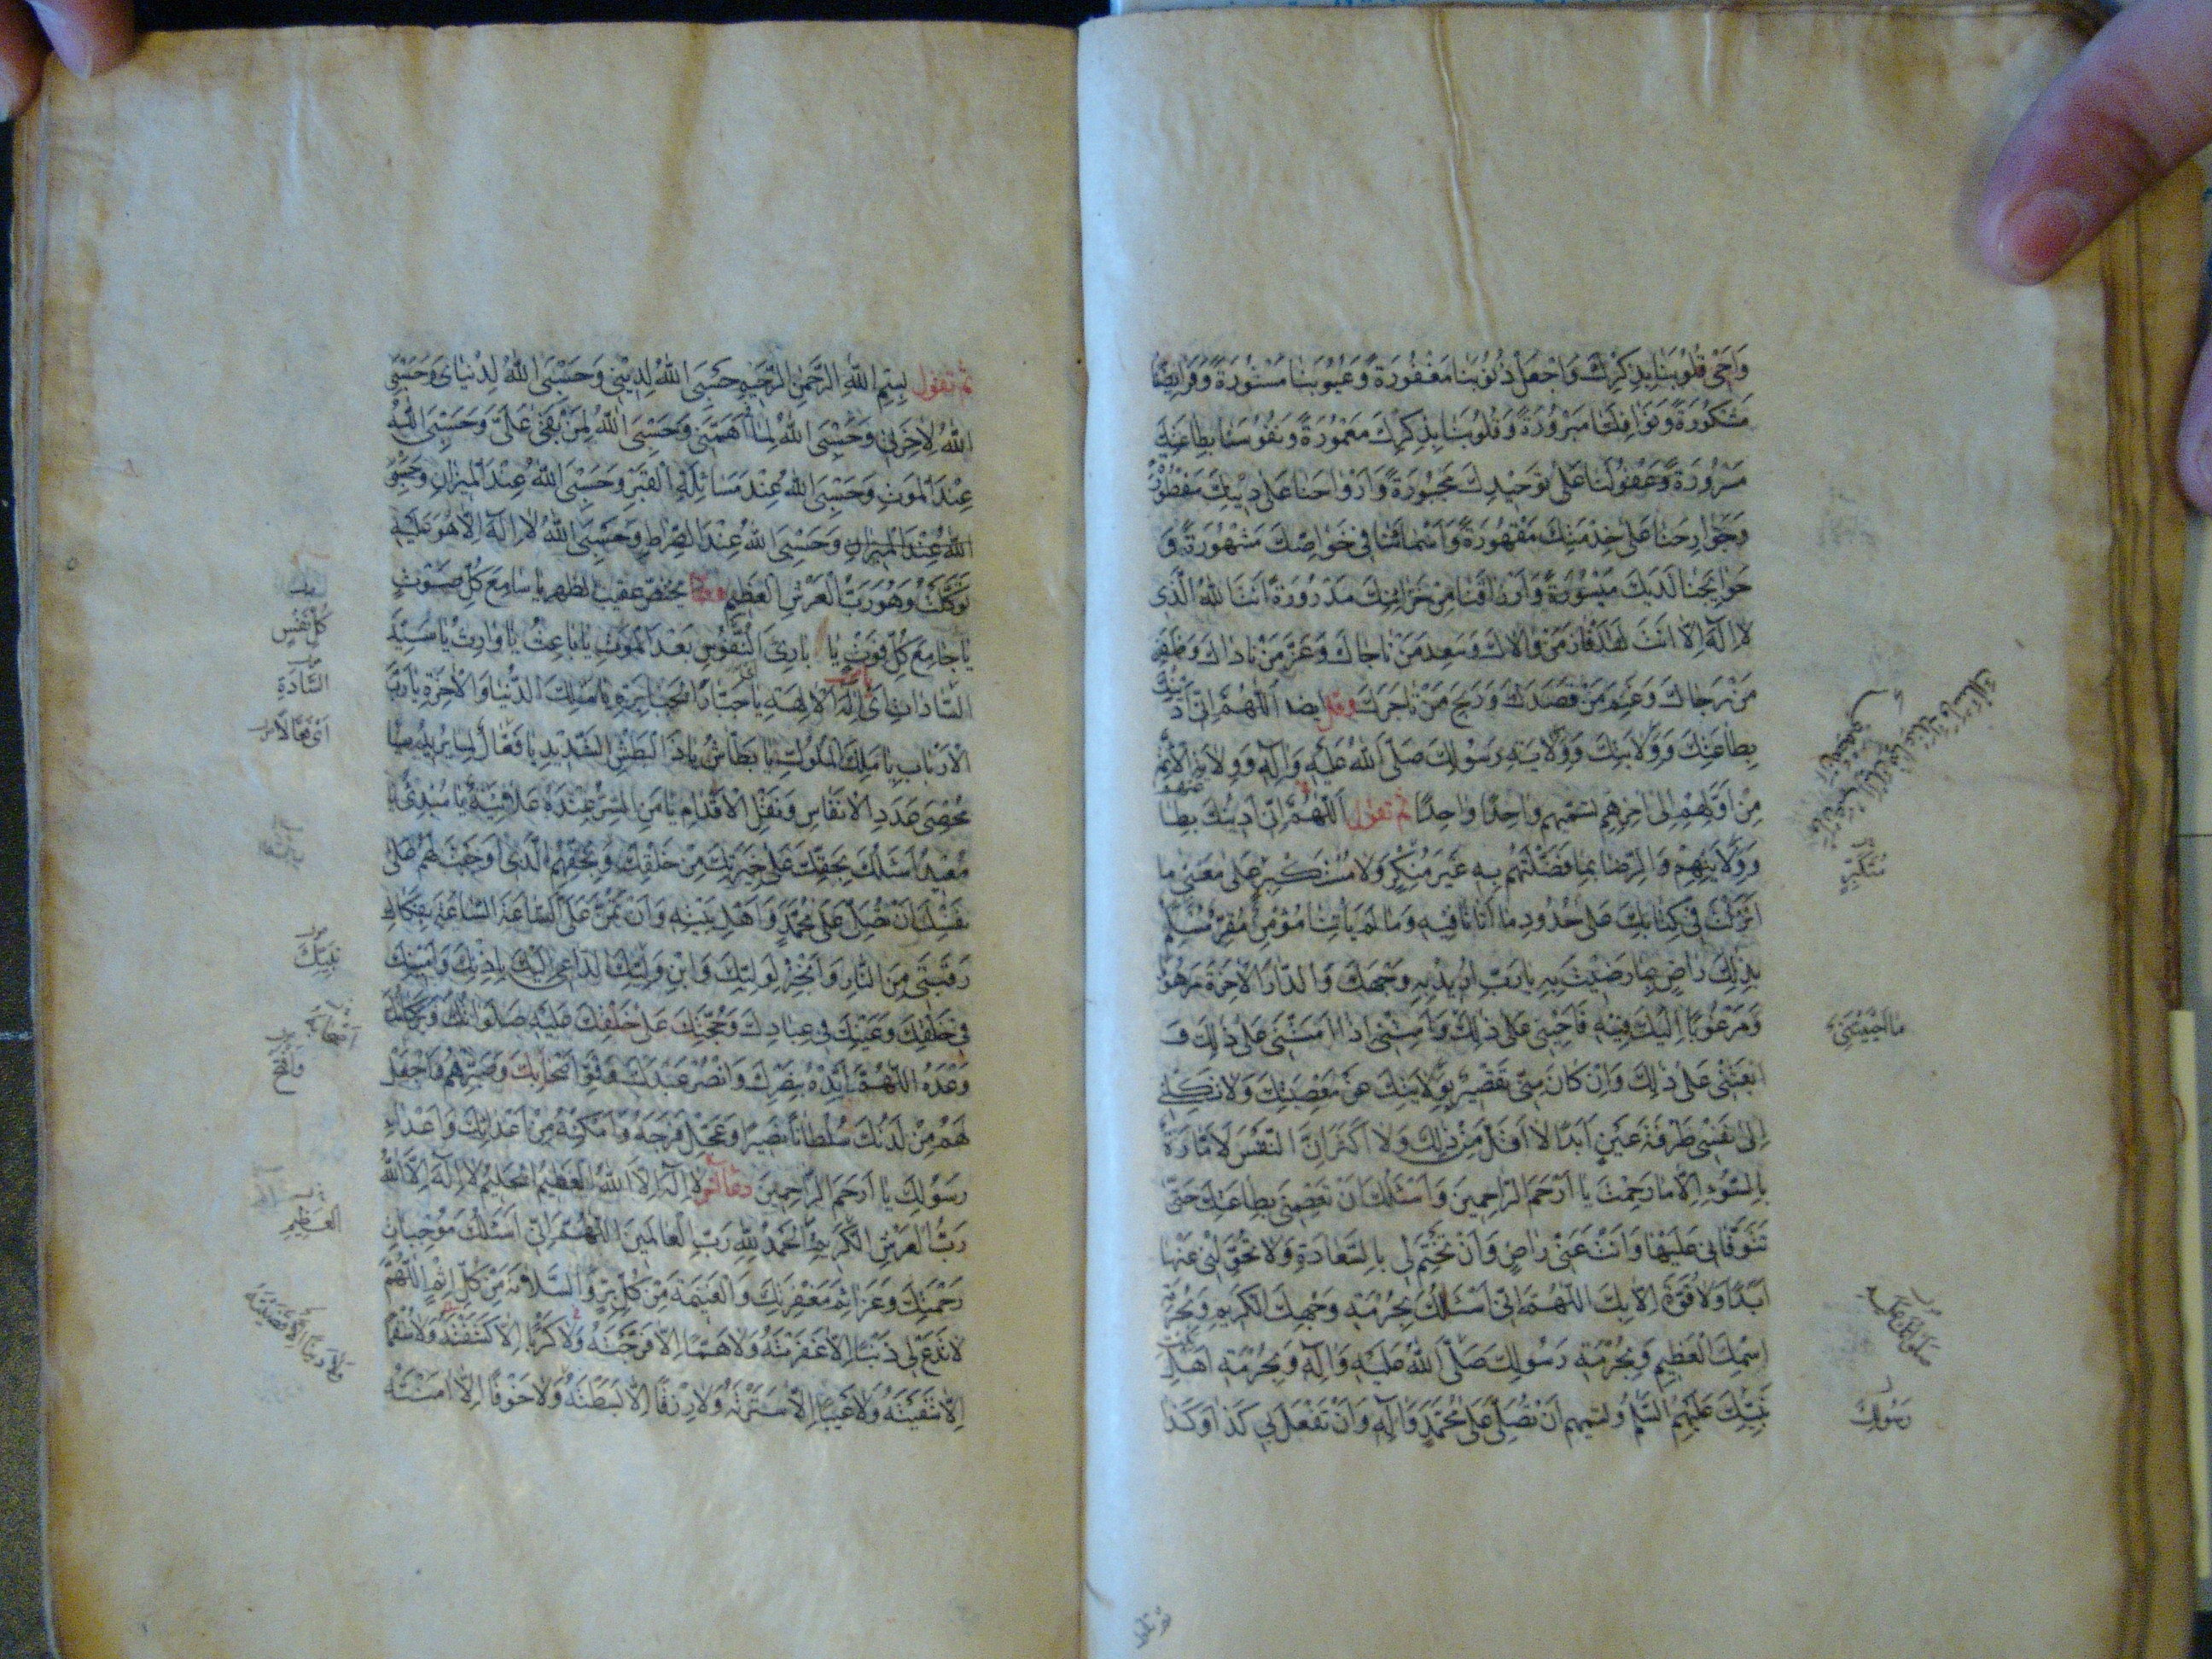 وَاَحْیِ قُلُوبَنَا بِذِكْرِكَ وَاجْعَلْ ذُنُوبَنَا مَغْفُورَةً وَعُيُوبَنَا مَسْتُورَةً وَفَرَائِضَنَا
مَشْكُورَةً وَنَوَافِلَنَا مَبْرُورَةً وَقُلُوبَنَا بِذِكْرِكَ مَعْمُورَةً وَنُفُوسَنَا بِطَاعَتِكَ
مَسْرُورَةً وَعُقُولَنَا عَلَى تَوْحِيدِكَ مَجْبُورَةً وَاَرْوَاحَنَا عَلَى دِينِكَ مَفْطُورَةً
وَجَوَارِحَنَا عَلَى خِدْمَتِكَ مَقْهُورَةً وَاَسْمَاءَنَا فِي خَوَاصِّكَ مَشْهُورَةً وَ
حَوَائِجَنَا لَدَيْكَ مَيْسُورَةً وَاَرْزَاقَنَا مِنْ خَزَائِنِكَ مَدْرُورَةً اَنْتَ اللهُ الَّذِى
لَا اِلَهَ اِلَّا اَنْتَ لَقَدْ فَازَ مَنْ وَالَاكَ وَسَعِدَ مَنْ نَاجَاكَ وَعَزَّ مَنْ نَادَاكَ وَظَفِرَ
مَنْ رَجَاكَ وَغَنِمَ مَنْ قَصَدَكَ وَرَبِحَ مَنْ تَاجَرَكَ وقل ايضا اَللّٰهُمَّ اِنّى اَدِينُكَ
بِطَاعَتِكَ وَوِلَايَتِكَ وَوِلَايَةِ رَسُولِكَ صَلَّى اللهُ عَلَيْهِ وَاٰلِهِ وَوِلَايَةِ الْاَئِمَّةِ
مِنْ اَوَّلِهِمْ اِلَى اٰخِرِهِمْ تسميهم وَاحِدًا وَاحِدًا ثم تقول اَللّٰهُمَّ اِنّى اَدِينُكَ بِطَا
وَوِلَايَتِهِمْ وَالرِّضَا بِمَا فَضَّلْتَهُمْ بِهِ غَيْرَ مُنْكِرٍ وَلَا مُسْتَكْبِرٍ عَلَى مَعْنَى مَا
اَنْزَلْتَ فِى كِتَابِكَ عَلَى حُدُودِ مَا اَتَانَا فِيهِ وَمَا لَمْ يَأْتِنَا مُؤْمِنٌ مُقِرٌّ مُسَلِّمٌ
بِذٰلِكَ رَاضٍ بِمَا رَضِيتَ بِهِ يَا رَبِّ اُرِيدُ بِهِ وَجْهَكَ وَالدَّارَ الْاٰخِرَةَ مَرْهُوبًا
وَمَرْغُوبًا اِلَيْكَ فِيهِ فَاَحْيِنِى عَلَى ذٰلِكَ وَاَمِتْنِى اِذَا اَمَتَّنِى عَلَى ذٰلِكَ وَ
ابْعَثْنِى عَلَى ذٰلِكَ وَاِنْ كَانَ مِنِّى تَقْصِيرٌ بِوِلَايَتِكَ عَنْ مَعْصِيَتِكَ وَلَا تَكِلْنِى
اِلَى نَفْسِى طَرْفَةَ عَيْنٍ اَبَدًا لَا اَقَلَّ مِنْ ذٰلِكَ وَلَا اَكْثَرَ اِنَّ النَّفْسَ لَاَمَّارَةٌ
بِالسُّوءِ اِلَّا مَا رَحِمْتَ يَا اَرْحَمَ الرَّاحِمِينَ وَاَسْئَلُكَ اَنْ تَعْصِمَنِى بِطَاعَتِكَ حَتَّى
تَتَوَفَّانِى عَلَيْهَا وَاَنْتَ عَنِّى رَاضٍ وَاَنْ تَخْتِمَ لِى بِالسَّعَادَةِ وَلَا تُحَوِّلَنِى عَنْهَا
اَبَدًا وَلَا قُوَّةَ اِلَّا بِكَ اَللّٰهُمَّ اِنّى اَسْئَلُكَ بِحُرْمَةِ وَجْهِكَ الْكَرِيمِ وَبِحُرْمَةِ
اسْمِكَ الْعَظِيمِ وَبِحُرْمَةِ رَسُولِكَ صَلَّى اللهُ عَلَيْهِ وَاٰلِهِ وَبِحُرْمَةِ اَهْلِ
نَبِيِّكَ عَلَيْهِمُ السَّلٰمُ وتسميهم اَنْ تُصَلِّىَ عَلَى مُحَمَّدٍ وَاٰلِهِ وَاَنْ تَفْعَلَ بِى كَذَا وَكَذَا
مُتَكَبِّرٍ
مَا اَحْيَيْتَنِى
رَسُولِكَ
ثم تقول بِسْمِ اللهِ الرَّحْمٰنِ الرَّحِيمِ حَسْبِىَ اللهُ لِدِينِى وَحَسْبِىَ اللهُ لِدُنْيَاىَ وَحَسْبِىَ
اللهُ لِاٰخِرَتِى وَحَسْبِىَ اللهُ لِمَا اَهَمَّنِى وَحَسْبِىَ اللهُ لِمَنْ بَغَى عَلَىَّ وَحَسْبِىَ اللهُ
عِنْدَ الْمَوْتِ وَحَسْبِىَ اللهُ عِنْدَ مَسَائِلَةِ الْقَبْرِ وَحَسْبِىَ اللهُ عِنْدَ الْمِيزَانِ وَحَسْبِىَ
اللهُ عِنْدَ الْمِيزَانِ وَحَسْبِىَ اللهُ عِنْدَ الصِّرَاطِ وَحَسْبِىَ اللهُ لَا اِلٰهَ اِلَّا هُوَ عَلَيْهِ
تَوَكَّلْتُ وَهُوَ رَبُّ الْعَرْشِ الْعَظِيمِ ومما يختص عقيب الظهر يَا سَامِعَ كُلِّ صَوْتٍ
يَا جَامِعَ كُلِّ فَوْتٍ يَا بَارِئَ النُّفُوسِ بَعْدَ الْمَوْتِ يَا بَاعِثُ يَا وَارِثُ يَا سَيِّدَ
السَّادَاتِ اَىْ اِلٰهَ الْاٰلِهَةِ يَا جَبَّارَ الْجَبَابِرَةِ يَا مَلِكَ الدُّنْيَا وَالْاٰخِرَةِ يَا رَبَّ
الْاَرْبَابِ يَا مَلِكَ الْمُلُوكِ يَا بَطَّاشُ يَا ذَا الْبَطْشِ الشَّدِيدِ يَا فَعَّالُ لِمَا يُرِيدُ يَا
مُحْصِىَ عَدَدِ الْاَنْفَاسِ وَنَقْلِ الْاَقْدَامِ يَا مَنِ السِّرُّ عِنْدَهُ عَلَانِيَةٌ يَا مُبْدِئُ يَا
مُعِيدُ اَسْئَلُكَ بِحَقِّكَ عَلَى خِيَرَتِكَ مِنْ خَلْقِكَ وَبِحَقِّهِمُ الَّذِى اَوْجَبْتَ لَهُمْ عَلَى
نَفْسِكَ اَنْ تُصَلِّىَ عَلَى مُحَمَّدٍ وَاَهْلِ بَيْتِهِ وَاَنْ تَمُنَّ عَلَىَّ السَّاعَةَ السَّاعَةَ بِفَكَاكِ
رَقَبَتِى مِنَ النَّارِ وَاَنْجِزْ لِوَلِيِّكَ وَابْنِ وَلِيِّكَ الدَّاعِى اِلَيْكَ بِاِذْنِكَ وَاَمِينِكَ
فِى خَلْقِكَ وَعَيْنِكَ فِى عِبَادِكَ وَحُجَّتِكَ عَلَى خَلْقِكَ عَلَيْهِ صَلَوَاتُكَ وَبَرَكَاتُكَ
وَعْدَهُ اَللّٰهُمَّ اَيِّدْهُ بِنَصْرِكَ وَانْصُرْ عَبْدَكَ وَقَوِّ اَصْحَابَكَ وَصَبِّرْهُمْ وَاجْعَلْ
لَهُمْ مِنْ لَدُنْكَ سُلْطَانًا نَصِيرًا وَعَجِّلْ فَرَجَهُ وَاَمْكِنْهُ مِنْ اَعْدَائِكَ وَاَعْدَاءِ
رَسُولِكَ يَا اَرْحَمَ الرَّاحِمِينَ دعاآخر لَا اِلٰهَ اِلَّا اللهُ الْعَظِيمُ الْحَلِيمُ لَا اِلٰهَ اِلَّا اللهُ
رَبُّ الْعَرْشِ الْكَرِيمِ اَلْحَمْدُ لِلّٰهِ رَبِّ الْعَالَمِينَ اَللّٰهُمَّ اِنّى اَسْئَلُكَ مُوجِبَاتِ
رَحْمَتِكَ وَعَزَائِمَ مَغْفِرَتِكَ وَالْغَنِيمَةَ مِنْ كُلِّ بِرٍّ وَالسَّلَامَةَ مِنْ كُلِّ اِثْمٍ اَللّٰهُمَّ
لَا تَدَعْ لِى ذَنْبًا اِلَّا غَفَرْتَهُ وَلَا هَمًّا اِلَّا فَرَّجْتَهُ وَلَا كَرْبًا اِلَّا كَشَفْتَهُ وَلَا سُقْمًا
اِلَّا شَفَيْتَهُ وَلَا عَيْبًا اِلَّا سَتَرْتَهُ وَلَا رِزْقًا اِلَّا بَسَطْتَهُ وَلَا خَوْفًا اِلَّا اٰمَنْتَهُ
كُلِّ نَفْسٍ
السَّادَةِ
نَبِيِّكَ
وَافْتَحْ
الْعَظِيمِ
وَلَا دَيْنًا اِلَّا قَضَيْتَهُ